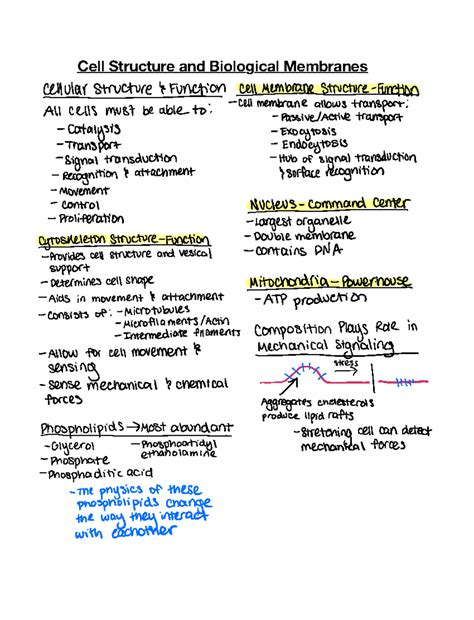 Cell Structure and Biological Membranes
Cellular Structure & Function
All cells must be able to:
- Catalysis
- Transport
- Signal transduction
- Recognition & attachment
- Movement
- Control
- Proliferation
Cytoskeleton Structure - Function
- Provides cell structure and vesical
support
- Determines cell shape
- Aids in movement & attachment
- Consists of: - Microtubules
- Microfilaments/Actin
- Intermediate filaments
- Allow for cell movement &
sensing
- Sense mechanical & chemical
forces
Phospholipids → Most abundant
- Glycerol
- Phosphate
- Phosphaditic acid
- Phosphoatidyl
ethanolamine
- The physics of these
phospholipids change
the way they interact
with eachother
Cell Membrane Structure - Function
- Cell membrane allows transport:
- Passive/Active transport
- Exocytosis
- Endocytosis
- Hub of signal transduction
& surface recognition
Nucleus - Command Center
- Largest organelle
- Double membrane
- Contains DNA
Mitochondria - Powerhouse
- ATP production
Composition Plays Role in
Mechanical Signaling
stress
Aggregates cholesterols
produce lipid rafts
- Stretching cell can detect
mechanical forces